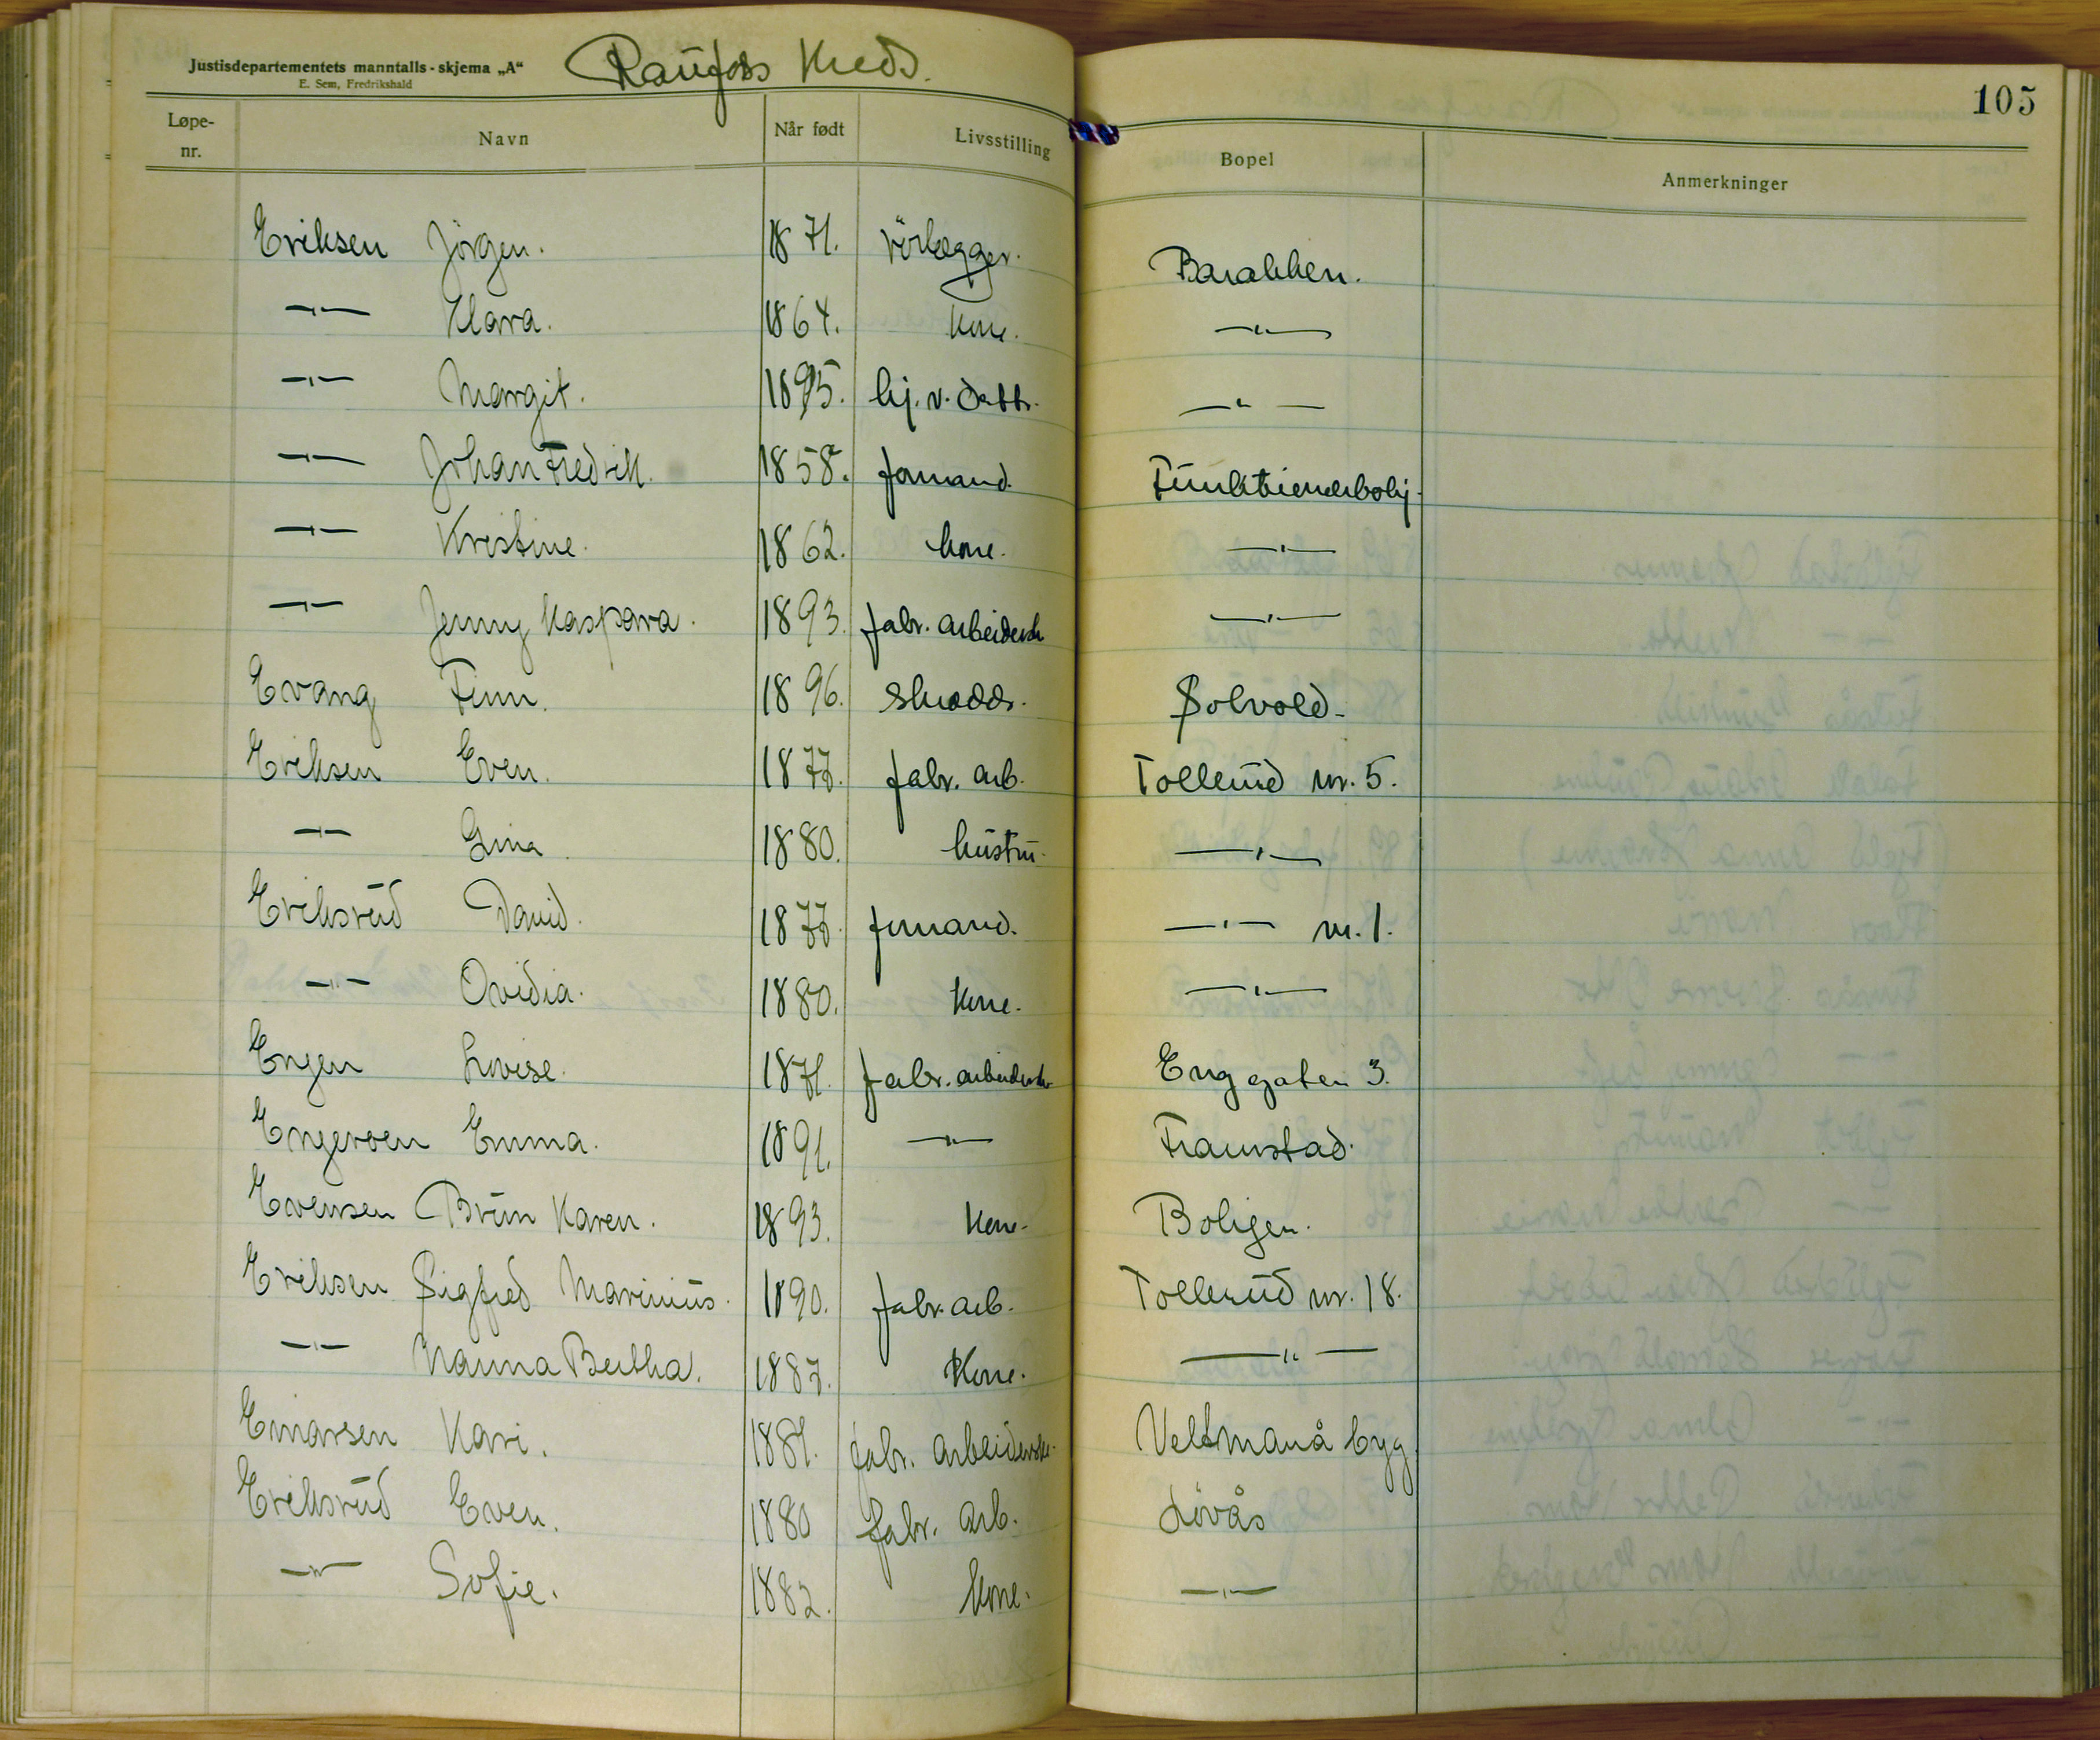 Justisdepartementets manntalls-skjema „A“
E. Sem, Fredrikshald
Raufoss Kreds.
105
Løpe-nr. Navn Når født Livsstilling Bopel Anmerkninger
Eriksen Jörgen. 1871. rörlægger. Barakken.
—"— Klara. 1864. Kone. —"—
—"— Margit. 1895. hj. v. datter. —"—
—"— Johan Fredrik. 1858. formand. Funktionærbolig.
—"— Kristine. 1862. kone. —"—
—"— Jenny Kaspara. 1893. fabr. arbeidersk —"—
Evang Finn. 1896. skrædds. Solvold.
Eriksen Even. 1877. fabr. arb. Tollerud nr. 5.
—"— Gina 1880. hustru. —"—
Eriksrud David. 1877. formand. —"— nr. 1.
—"— Ovidia. 1880. Kone. —"—
Engen Lovise. 1871. fabr. arbeiderske Enggaten 3.
Engeroen Emma. 1891. —"— Framstad.
Evensen Brun Karen. 1893. Kone. Boligen.
Eriksen Sigfred Marinius. 1890. fabr. arb. Tollerud nr. 18.
—"— Nanna Bertha. 1887. Kone. —"—
Einarsen Kari. 1881. fabr. arbeiderske. Veltmanå byg.
Eriksrud Even. 1880 fabr. arb. Lövås
—"— Sofie. 1882. kone. —"—